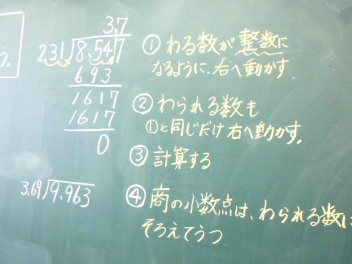 う。
3.7
2.31)8.54.7
693
1617
1617
0
3.69)9.963
①わる数が整数に
なるように、右へ動かす.
②わられる数も
①と同じだけ右へ動かす。
③計算する
④商の小数点は、わられる数に
そろえてうつ